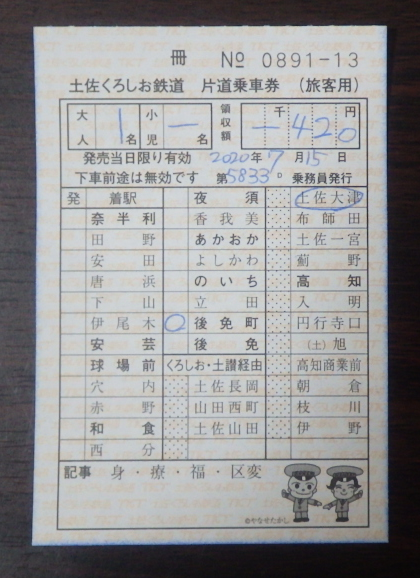 冊 № 0891-13
土佐くろしお鉄道 片道乗車券 (旅客用)
大人 1名 小児 ー名 領収額 千 円 ー420
発売当日限り有効 2020年7月15日
下車前途は無効です 第5833D 乗務員発行
発 着駅 夜須 土佐大津
奈半利 香我美 布師田
田野 あかおか 土佐一宮
安田 よしかわ 薊野
唐浜 のいち 高知
下山 立田 入明
伊尾木 〇 後免町 円行寺口
安芸 後免 (土)旭
球場前 くろしお・土讃経由 高知商業前
穴内 土佐長岡 朝倉
赤野 山田西町 枝川
和食 土佐山田 伊野
西分
記事 身・療・福・区変
©やなせたかし